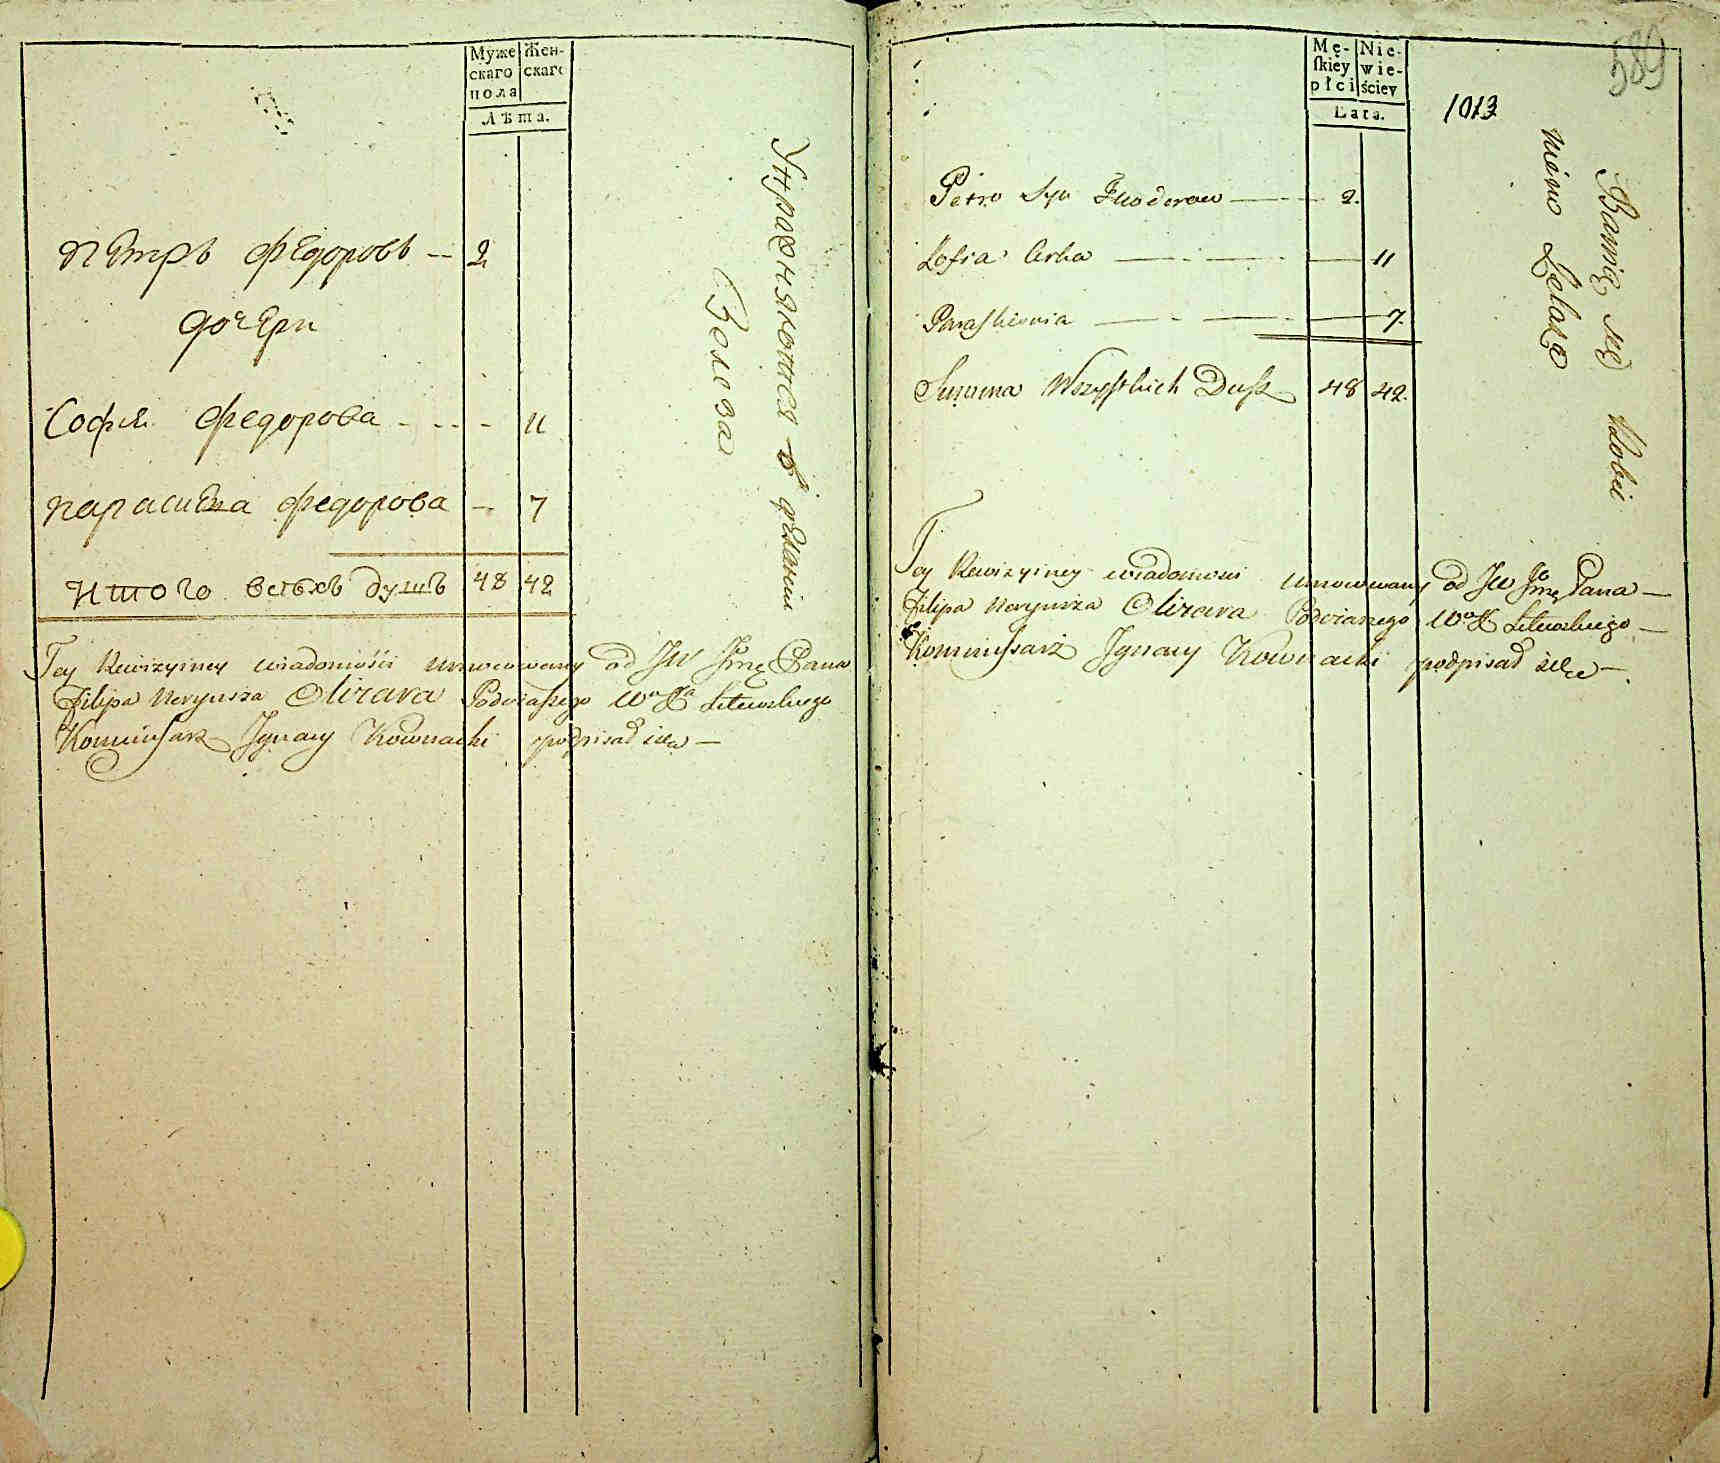 Муже
скаго
пола
Жен-
скаго
Лѣта.
Петръ Федоровъ — 2
дочери
Софія Федорова - - - 11
Парасковa Федорова — 7
Итого всѣхъ душъ 48 42
Упражняются в деланіи
Tey Rewizyiney wiadomości umocowany od JW Jmę Pana
Filipa Neryusza Olizara Podczaszego Wo Xa Litewskiego
Kommissarz Ignacy Kownacki podpisał się —
Mę-
ſkiey
płci
Nie-
wie-
ściey
Lata.
589
1013
Petro Syn Fwodorow — 2.
Zofia Corka — 11
Paraskiewia — 7.
Summa Wszystkich Dusz 48 42.
Bawią się Robie
niem Zelaza
Tey Rewizyiney wiadomosci umocowany od JW Jmę Pana —
Filipa Neryusza Olizara Podczaszego Wo X Litewskiego —
Kommissarz Ignacy Kownacki podpisał się —.